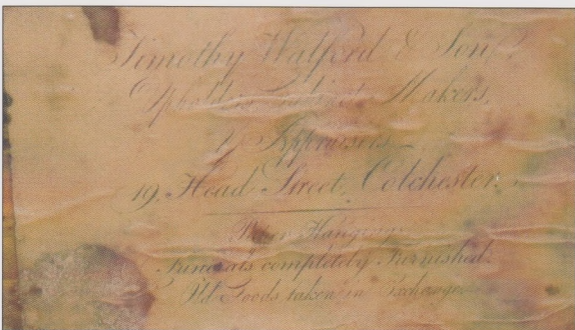 Timothy Walford & Son,
Upholders Cabinet Makers,
& Appraisers
19, Head Street, Colchester.
Paper Hangings
Funerals completely Furnished.
Old Goods taken in Exchange